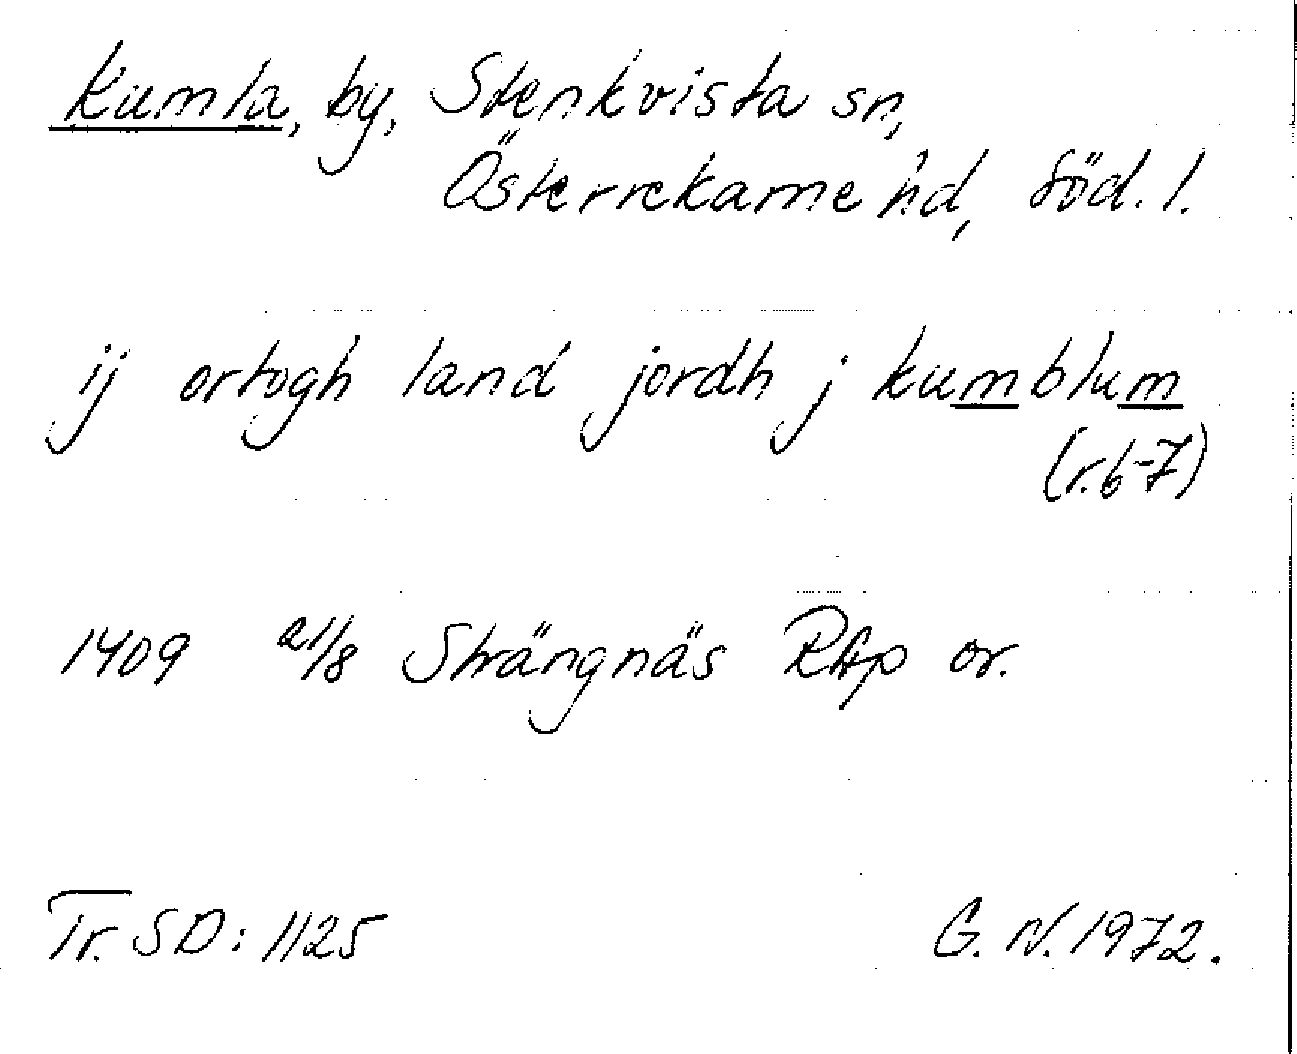 Kumla, by, Stenkvista sn,
Österrekarne hd, Söd. l.
ij ortogh land jordh j kumblum
(r. 6-7)
1409 21/8 Strängnäs RAp or.
Tr. SD: 1125 G. N. 1972.